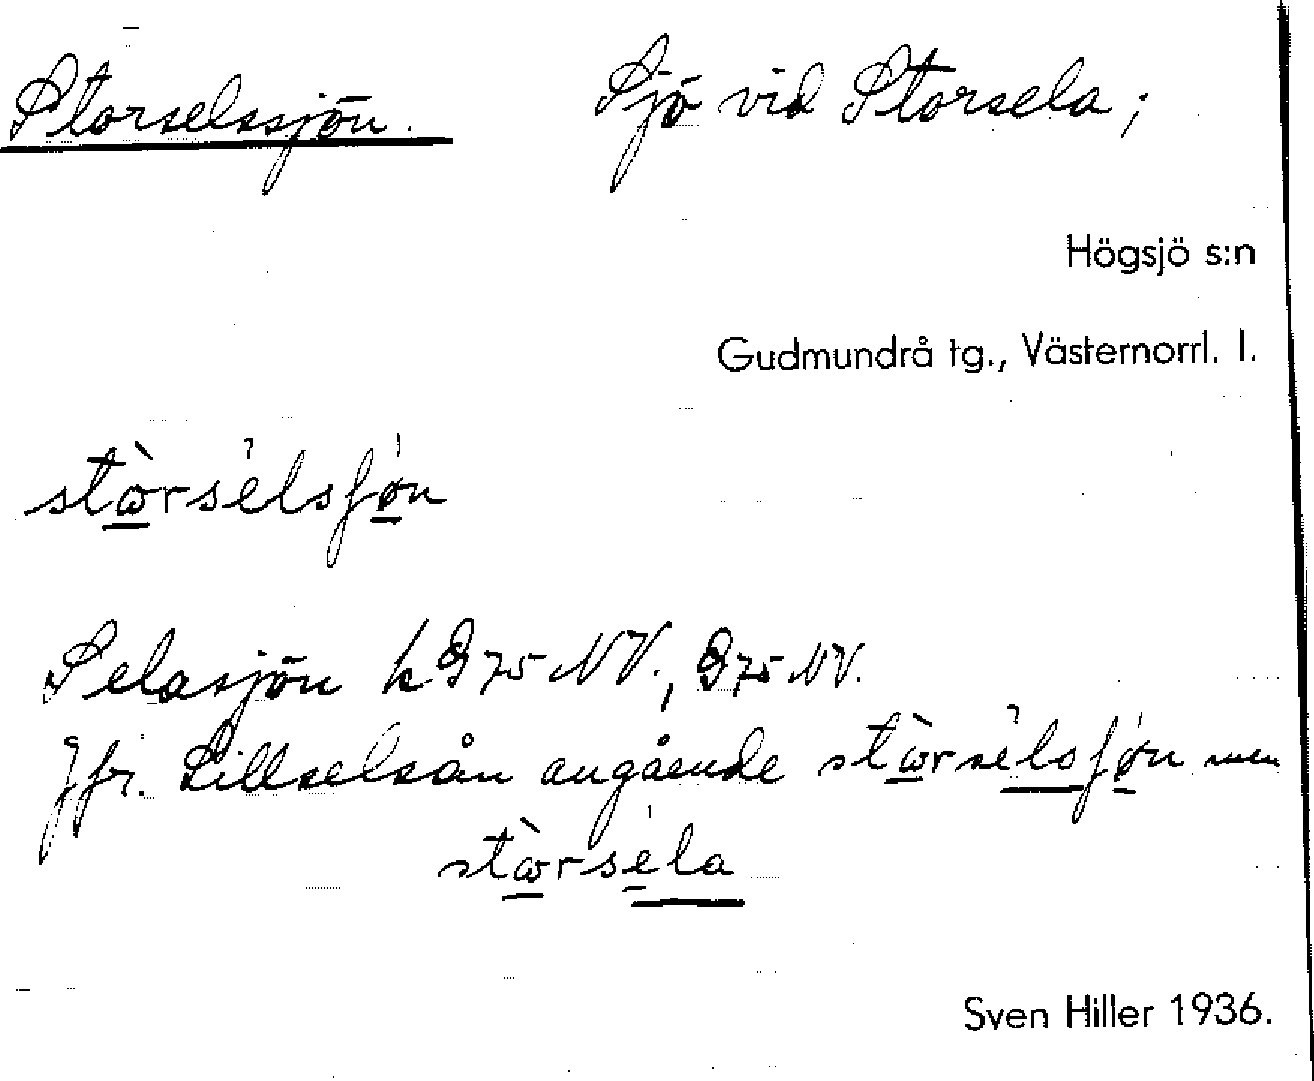 Storselssjön. Sjö vid Storsela;
Högsjö s:n
Gudmundrå tg., Västernorrl. l.
stɷ̀rsélsʃø̀n
Selasjön k G 75 NV., G 75 NV.
Jfr. Lillselsån angående stɷ̀rsélsʃøn men
stɷ̀rséla
Sven Hiller 1936.